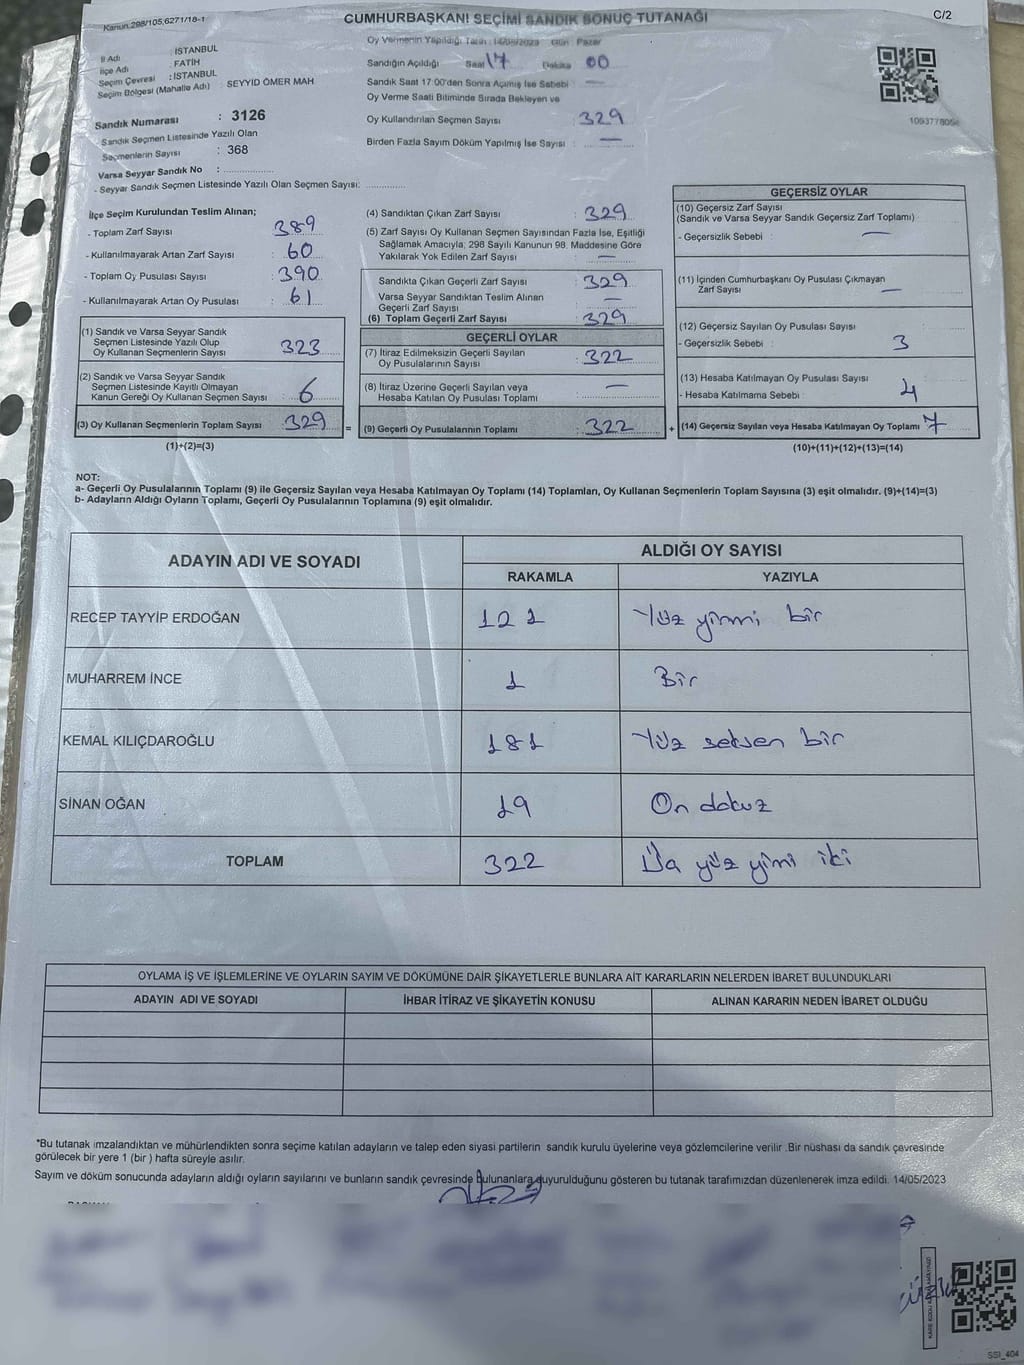 Kanun:298/105,6271/18-1
CUMHURBAŞKANI SEÇİMİ SANDIK SONUÇ TUTANAĞI
C/2
İl Adı : İSTANBUL
İlçe Adı : FATİH
Seçim Çevresi : İSTANBUL
Seçim Bölgesi (Mahalle Adı) : SEYYİD ÖMER MAH
Sandık Numarası : 3126
Sandık Seçmen Listesinde Yazılı Olan
Seçmenlerin Sayısı : 368
Varsa Seyyar Sandık No :
- Seyyar Sandık Seçmen Listesinde Yazılı Olan Seçmen Sayısı:
Oy Vermenin Yapıldığı Tarih : 14/05/2023 Gün : Pazar
Sandığın Açıldığı Saat 17 Dakika 00
Sandık Saat 17:00'den Sonra Açılmış İse Sebebi : —
Oy Verme Saati Bitiminde Sırada Bekleyen ve
Oy Kullandırılan Seçmen Sayısı : 329
Birden Fazla Sayım Döküm Yapılmış İse Sayısı : —
İlçe Seçim Kurulundan Teslim Alınan;
- Toplam Zarf Sayısı : 389
- Kullanılmayarak Artan Zarf Sayısı : 60
- Toplam Oy Pusulası Sayısı : 390
- Kullanılmayarak Artan Oy Pusulası : 61
(1) Sandık ve Varsa Seyyar Sandık
Seçmen Listesinde Yazılı Olup
Oy Kullanan Seçmenlerin Sayısı : 323
(2) Sandık ve Varsa Seyyar Sandık
Seçmen Listesinde Kayıtlı Olmayan
Kanun Gereği Oy Kullanan Seçmen Sayısı : 6
(3) Oy Kullanan Seçmenlerin Toplam Sayısı : 329
(1)+(2)=(3)
(4) Sandıktan Çıkan Zarf Sayısı : 329
(5) Zarf Sayısı Oy Kullanan Seçmen Sayısından Fazla İse, Eşitliği
Sağlamak Amacıyla; 298 Sayılı Kanunun 98. Maddesine Göre
Yakılarak Yok Edilen Zarf Sayısı : —
Sandıkta Çıkan Geçerli Zarf Sayısı : 329
Varsa Seyyar Sandıktan Teslim Alınan
Geçerli Zarf Sayısı : —
(6) Toplam Geçerli Zarf Sayısı : 329
GEÇERLİ OYLAR
(7) İtiraz Edilmeksizin Geçerli Sayılan
Oy Pusulalarının Sayısı : 322
(8) İtiraz Üzerine Geçerli Sayılan veya
Hesaba Katılan Oy Pusulası Toplamı : —
= (9) Geçerli Oy Pusulalarının Toplamı : 322
GEÇERSİZ OYLAR
(10) Geçersiz Zarf Sayısı
(Sandık ve Varsa Seyyar Sandık Geçersiz Zarf Toplamı)
- Geçersizlik Sebebi : —
(11) İçinden Cumhurbaşkanı Oy Pusulası Çıkmayan
Zarf Sayısı : —
(12) Geçersiz Sayılan Oy Pusulası Sayısı
- Geçersizlik Sebebi : 3
(13) Hesaba Katılmayan Oy Pusulası Sayısı
- Hesaba Katılmama Sebebi : 4
+ (14) Geçersiz Sayılan veya Hesaba Katılmayan Oy Toplamı 7
(10)+(11)+(12)+(13)=(14)
NOT:
a- Geçerli Oy Pusulalarının Toplamı (9) ile Geçersiz Sayılan veya Hesaba Katılmayan Oy Toplamı (14) Toplamları, Oy Kullanan Seçmenlerin Toplam Sayısına (3) eşit olmalıdır. (9)+(14)=(3)
b- Adayların Aldığı Oyların Toplamı, Geçerli Oy Pusulalarının Toplamına (9) eşit olmalıdır.
ADAYIN ADI VE SOYADI
ALDIĞI OY SAYISI
RAKAMLA YAZIYLA
RECEP TAYYİP ERDOĞAN 121 Yüz yirmi bir
MUHARREM İNCE 1 Bir
KEMAL KILIÇDAROĞLU 181 Yüz seksen bir
SİNAN OĞAN 19 On dokuz
TOPLAM 322 yüz yirmi iki
OYLAMA İŞ VE İŞLEMLERİNE VE OYLARIN SAYIM VE DÖKÜMÜNE DAİR ŞİKAYETLERLE BUNLARA AİT KARARLARIN NELERDEN İBARET BULUNDUKLARI
ADAYIN ADI VE SOYADI İHBAR İTİRAZ VE ŞİKAYETİN KONUSU ALINAN KARARIN NEDEN İBARET OLDUĞU
*Bu tutanak imzalandıktan ve mühürlendikten sonra seçime katılan adayların ve talep eden siyasi partilerin sandık kurulu üyelerine veya gözlemcilerine verilir .Bir nüshası da sandık çevresinde
görülecek bir yere 1 (bir ) hafta süreyle asılır.
Sayım ve döküm sonucunda adayların aldığı oyların sayılarını ve bunların sandık çevresinde bulunanlara duyurulduğunu gösteren bu tutanak tarafımızdan düzenlenerek imza edildi. 14/05/2023
SSI_404